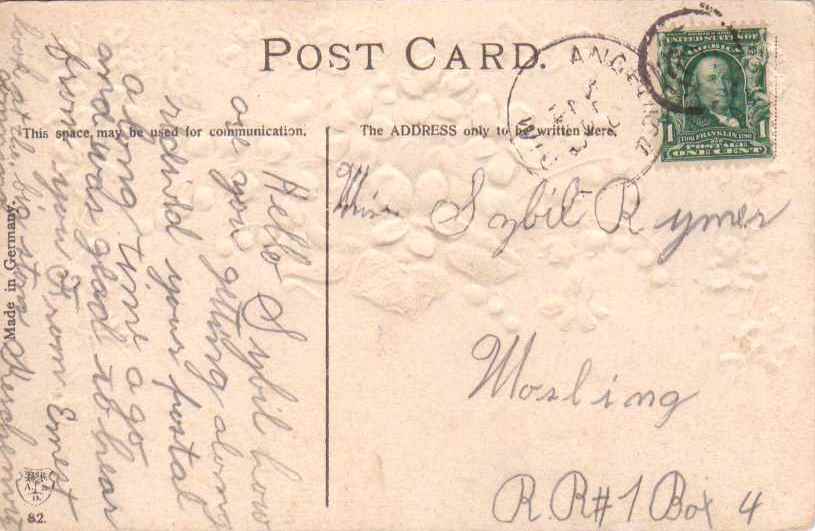 POST CARD.
This space, may be used for communication.
The ADDRESS only to be written here.
ANGELICA
WIS
UNITED STATES OF
AMERICA
1 FRANKLIN 1
POSTAGE
ONE CENT
Miss Sybil Rymer
Mosling
R.R#1 Box 4
Hello Sybil how
are you getting along
your postal
a long time ago
and was glad to hear
from you From Ernest
look at the big
Made in Germany.
82.